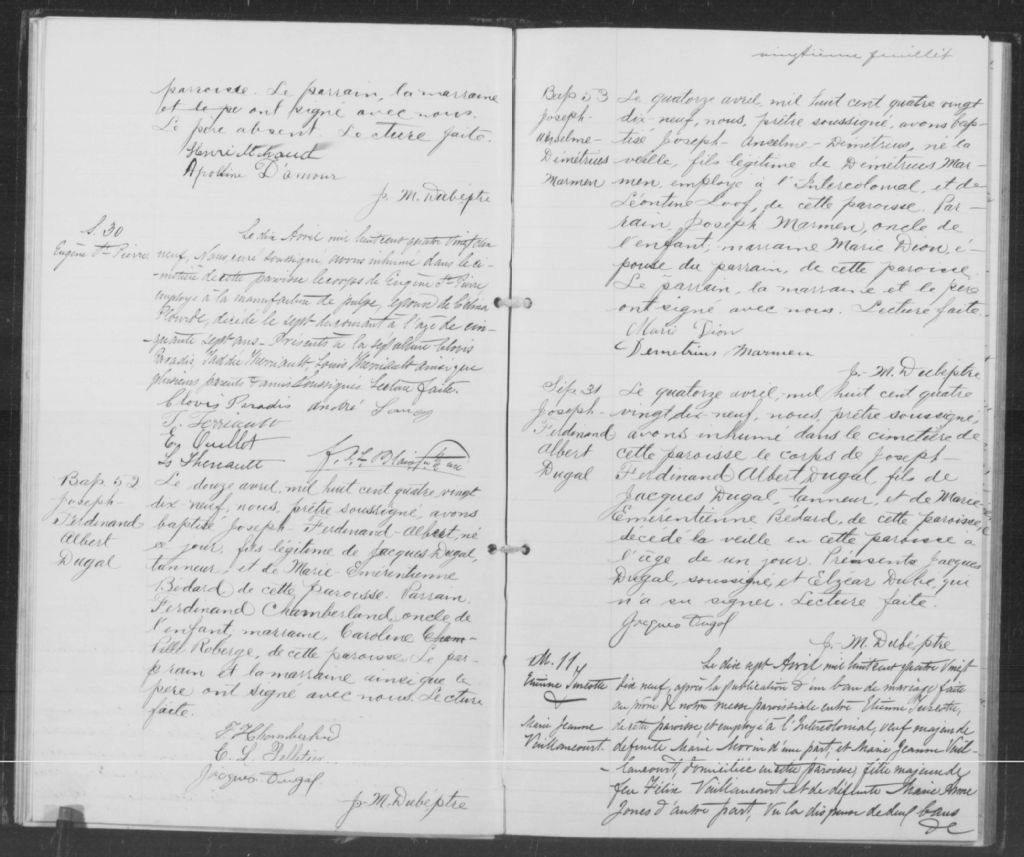 parroisse. Le parrain, la marraine
et le pe ont signé avec nous.
Le père absent. Lecture faite.
Henri Michaud
Apolline D'amour
J. M. Dubé ptre
S. 30
Eugène St-Pierre
Le dix Avril mil huit cent quatre vingt dix
neuf, Nous curé soussigné avons inhumé dans le ci-
metière de cette paroisse le corps de Eugène St Pierre
employé à la manufacture de pulpe, époux de Célina
Plourde, décédé le sept du courant à l'âge de cin-
quante sept ans. Présents à la sépulture Clovis
Paradis, Taddée Therriault, Louis Therriault ainsi que
plusieurs parents & amis soussignés Lecture faite.
Clovis Paradis André
T. Terriault
Ouellet
Ls Theriault
Bap 52
Joseph-
Ferdinand
Albert
Dugal
Le douze avril, mil huit cent quatre vingt
dix neuf, nous, prêtre soussigné, avons
baptisé Joseph-Ferdinand-Albert, né
ce jour, fils légitime de Jacques Dugal,
tanneur, et de Marie-Emérentienne
Bédard de cette paroisse. Parrain
Ferdinand Chamberland, oncle de
l'enfant, marraine, Caroline Cham-
Roberge, de cette paroisse. Le par-
rain et la marraine ainsi que le
père ont signé avec nous. Lecture
faite.
F Chamberland
C. L. Pelletier
Jacques Dugal
J. M. Dubé ptre
vingtième feuillet
Bap 53
Joseph-
Anselme-
Démétrius
Marmen
Le quatorze avril, mil huit cent quatre vingt
dix-neuf, nous, prêtre soussigné, avons bap-
tisé Joseph-Anselme-Démétrius, né la
veille, fils légitime de Démétrius Mar-
men, employé à l'Intercolonial, et de
Léontine Loof, de cette paroisse. Par-
rain, Joseph Marmen, oncle de
l'enfant, marraine Marie Dion, é-
pouse du parrain, de cette paroisse.
Le parrain, la marraine et le père
ont signé avec nous. Lecture faite.
Marie Dion
Demetrius Marmen
J. M. Dubé ptre
Sép. 31
Joseph-
Ferdinand
Albert
Dugal
Le quatorze avril, mil huit cent quatre
vingt, dix-neuf, nous, prêtre soussigné,
avons inhumé dans le cimetière de
cette paroisse le corps de Joseph-
Ferdinand Albert Dugal, fils de
Jacques Dugal, tanneur, et de Marie-
Emérentienne Bédard, de cette paroisse,
décédé la veille en cette paroisse à
l'âge de un jour. Présents Jacques
Dugal, soussigné, et Elzéar Dubé, qui
n'a su signer. Lecture faite.
Jacques Dugal
J. M. Dubé ptre
M. 11
Etienne Turcotte
&
Marie Jeanne
Vaillancourt.
Le dix sept Avril mil huit cent quatre vingt
dix neuf, après la publication d'un ban de mariage faite
au prône de notre messe paroissiale entre Etienne Turcotte,
de cette paroisse, et employé à l'Intercolonial, veuf majeur de
défunte Marie Morin d'une part, et Marie Jeanne Vail-
lancourt, domiciliée en cette paroisse, fille majeure de
feu Félix Vaillancourt et de défunte Marie Anne
Jones d'autre part, Vu la dispense de deux bans